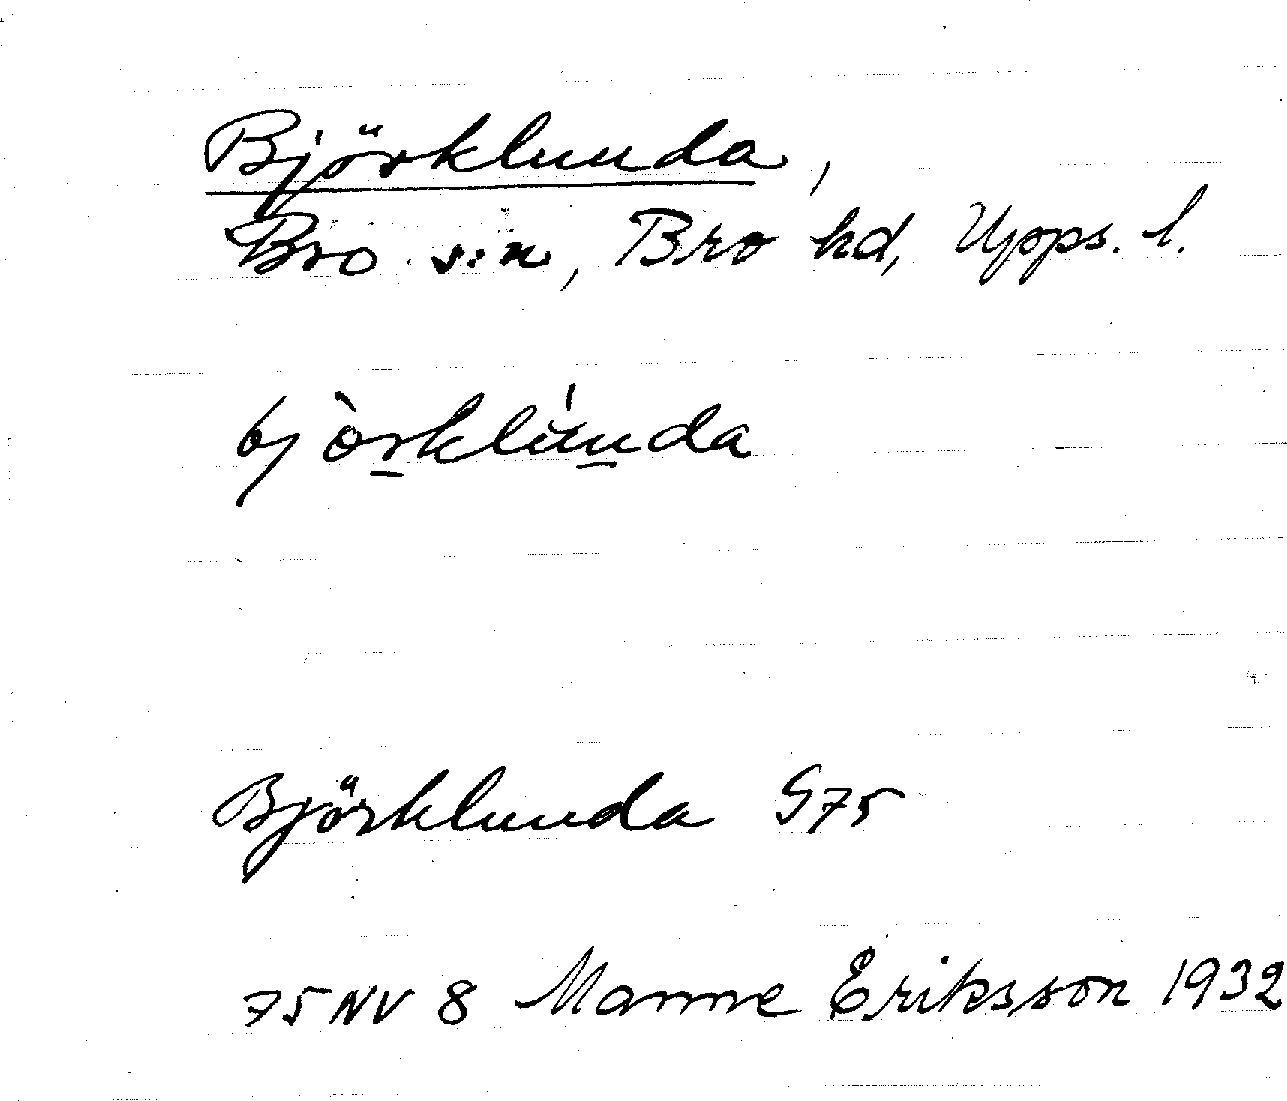 Björklunda,
Bro s:n, Bro hd, Upps. l.
bjòrklúnda
Björklunda G75
75 NV 8 Manne Eriksson 1932